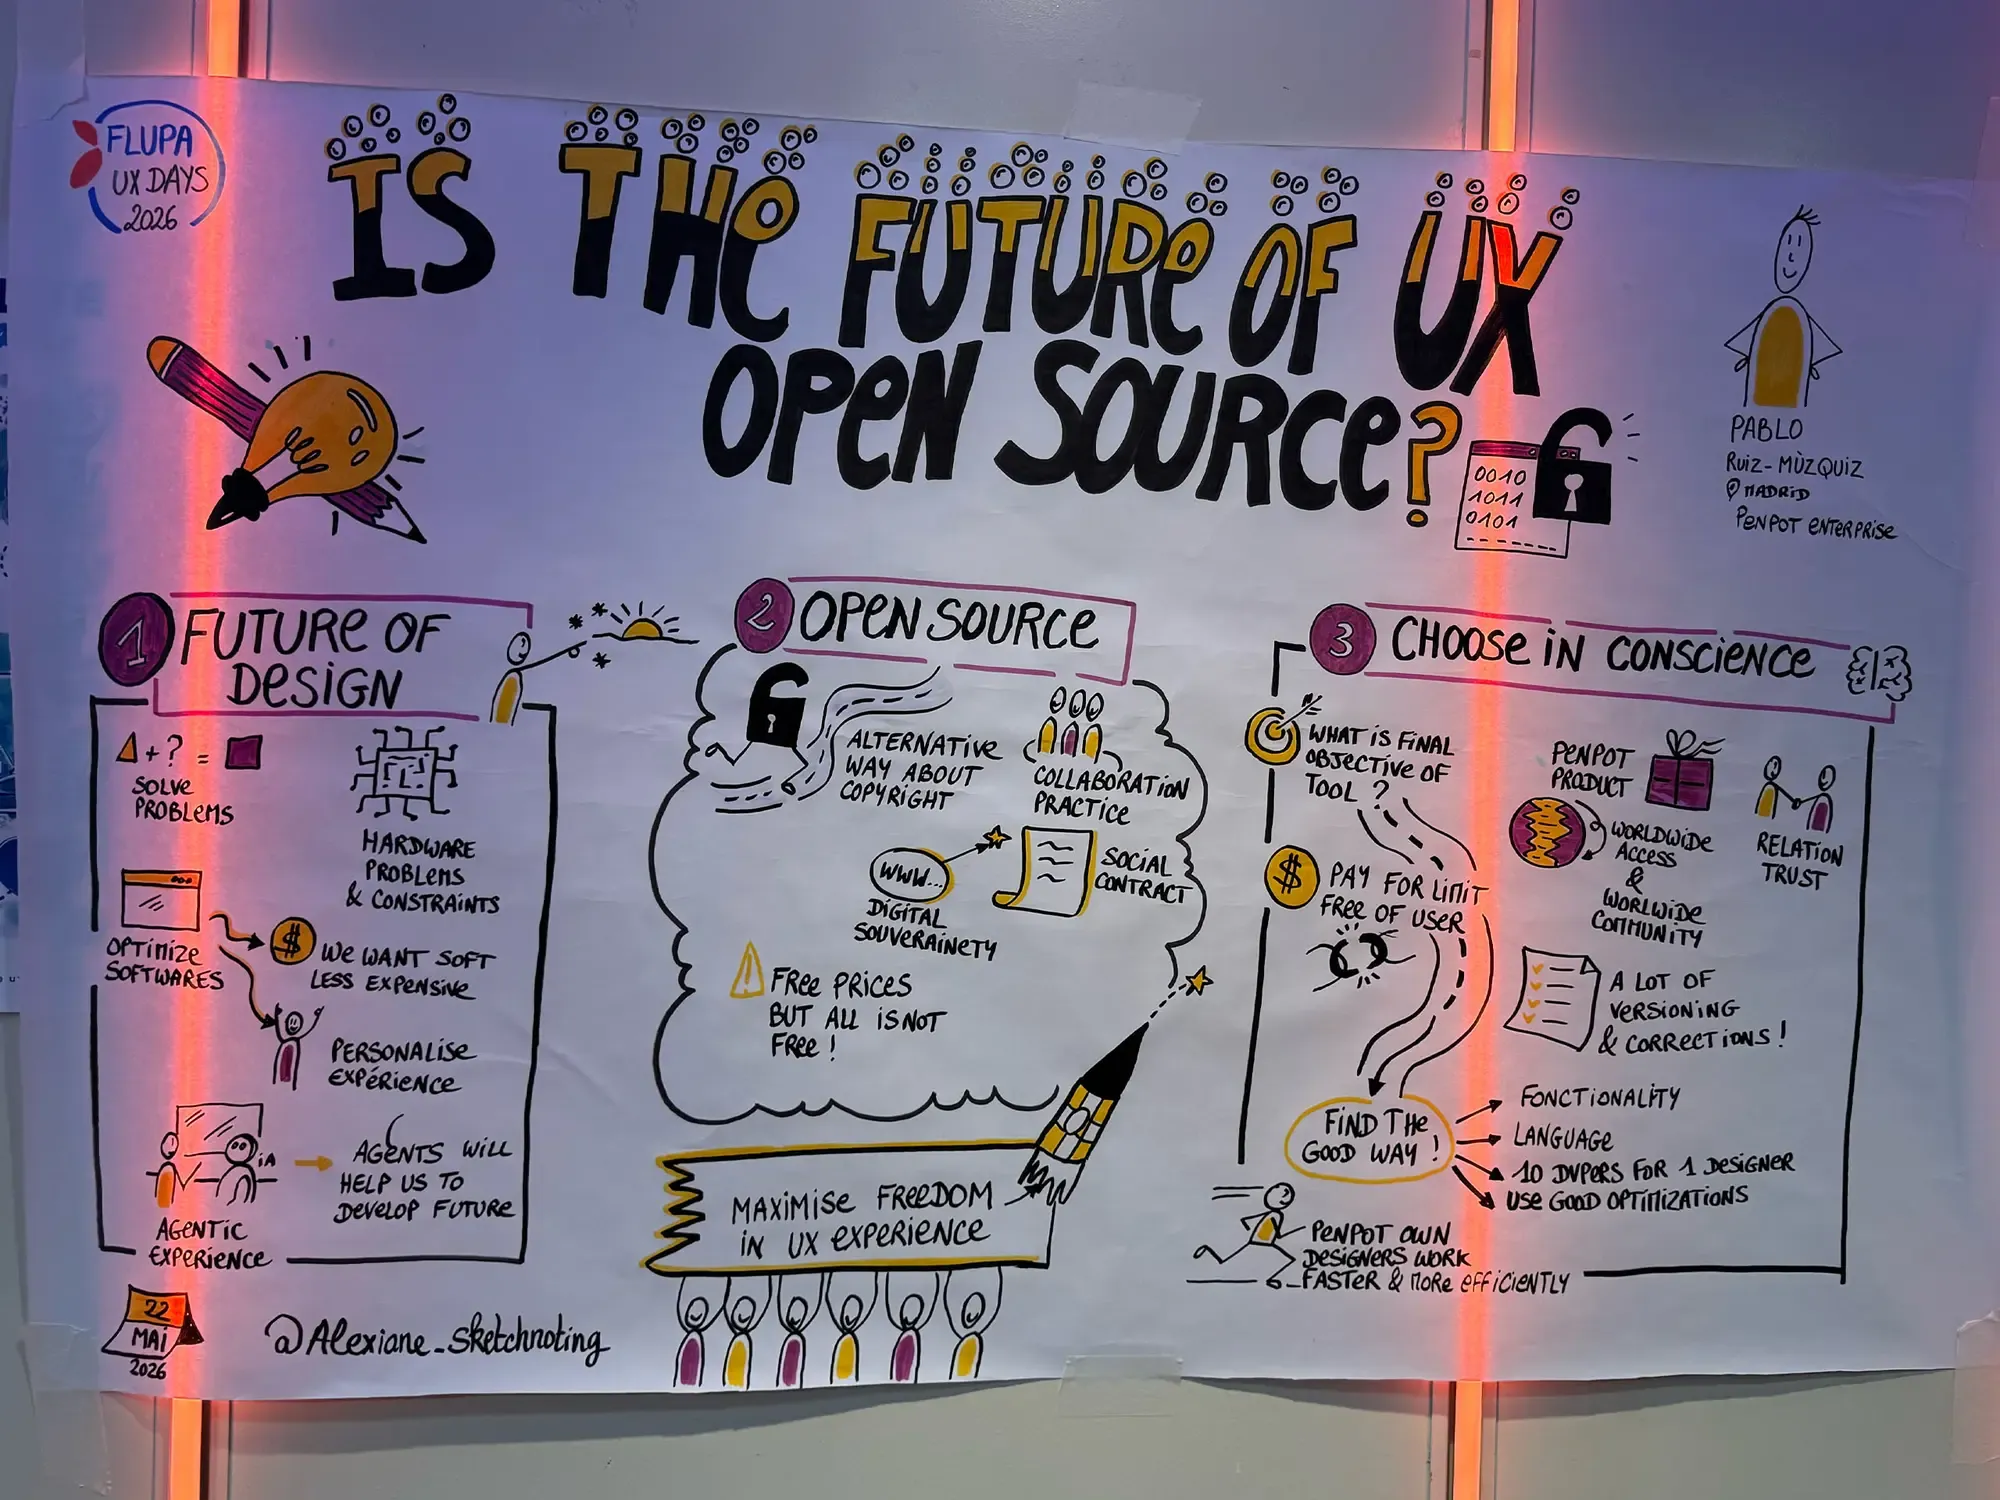 FLUPA
UX DAYS
2026
IS THE FUTURE OF UX
OPEN SOURCE?
0010
1011
0101
PABLO
RUIZ-MÙZQUIZ
MADRID
PENPOT ENTERPRISE
1 FUTURE OF
DESIGN
+ ? =
SOLVE
PROBLEMS
HARDWARE
PROBLEMS
& CONSTRAINTS
OPTIMIZE
SOFTWARES
$ WE WANT SOFT
LESS EXPENSIVE
PERSONALISE
EXPÉRIENCE
iA
AGENTIC
EXPERIENCE
AGENTS WILL
HELP US TO
DEVELOP FUTURE
2 OPEN SOURCE
ALTERNATIVE
WAY ABOUT
COPYRIGHT
COLLABORATION
PRACTICE
WWW...
DIGITAL
SOUVERAINETY
SOCIAL
CONTRACT
! FREE PRICES
BUT ALL IS NOT
FREE !
MAXIMISE FREEDOM
IN UX EXPERIENCE
3 CHOOSE IN CONSCIENCE
WHAT IS FINAL
OBJECTIVE OF
TOOL ?
$ PAY FOR LIMIT
FREE OF USER
FIND THE
GOOD WAY !
PENPOT
PRODUCT
WORLDWIDE
ACCESS
&
WORLWIDE
COMMUNITY
RELATION
TRUST
A LOT OF
VERSIONING
& CORRECTIONS !
FONCTIONALITY
LANGUAGE
10 DVPERS FOR 1 DESIGNER
USE GOOD OPTIMIZATIONS
PENPOT OWN
DESIGNERS WORK
FASTER & MORE EFFICIENTLY
22
MAI
2026
@Alexiane_sketchnoting